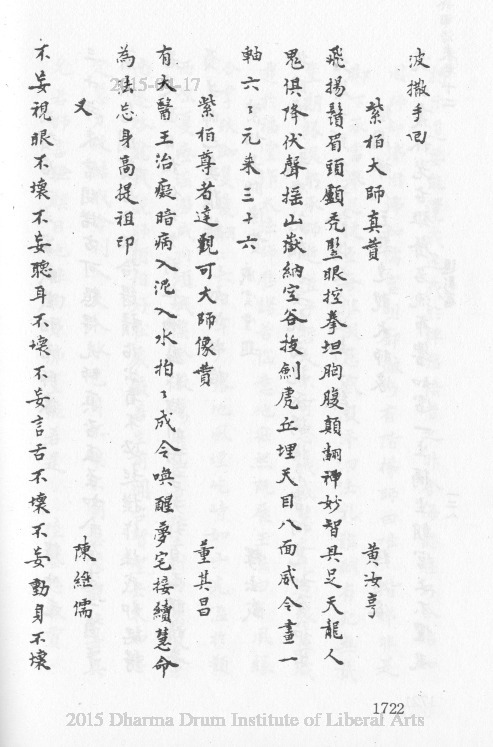 波撒手回
紫柏大師真贊
黃汝亨
飛揚鬚眉頭顱禿豎眼控拳坦胸腹顛翻神妙智具足天龍人
鬼俱降伏聲搖山嶽納空谷按劍虎丘埋天目八面威令畫一
軸六六元來三十六
紫柏尊者達觀可大師像贊
董其昌
有大醫王治癡暗病入泥入水拍々成令喚醒夢宅接續慧命
為法忘身高提祖印
又
陳繼儒
不妄視眼不壞不妄聽耳不壞不妄言舌不壞不妄動身不壞
1722
2015-04-17
2015 Dharma Drum Institute of Liberal Arts